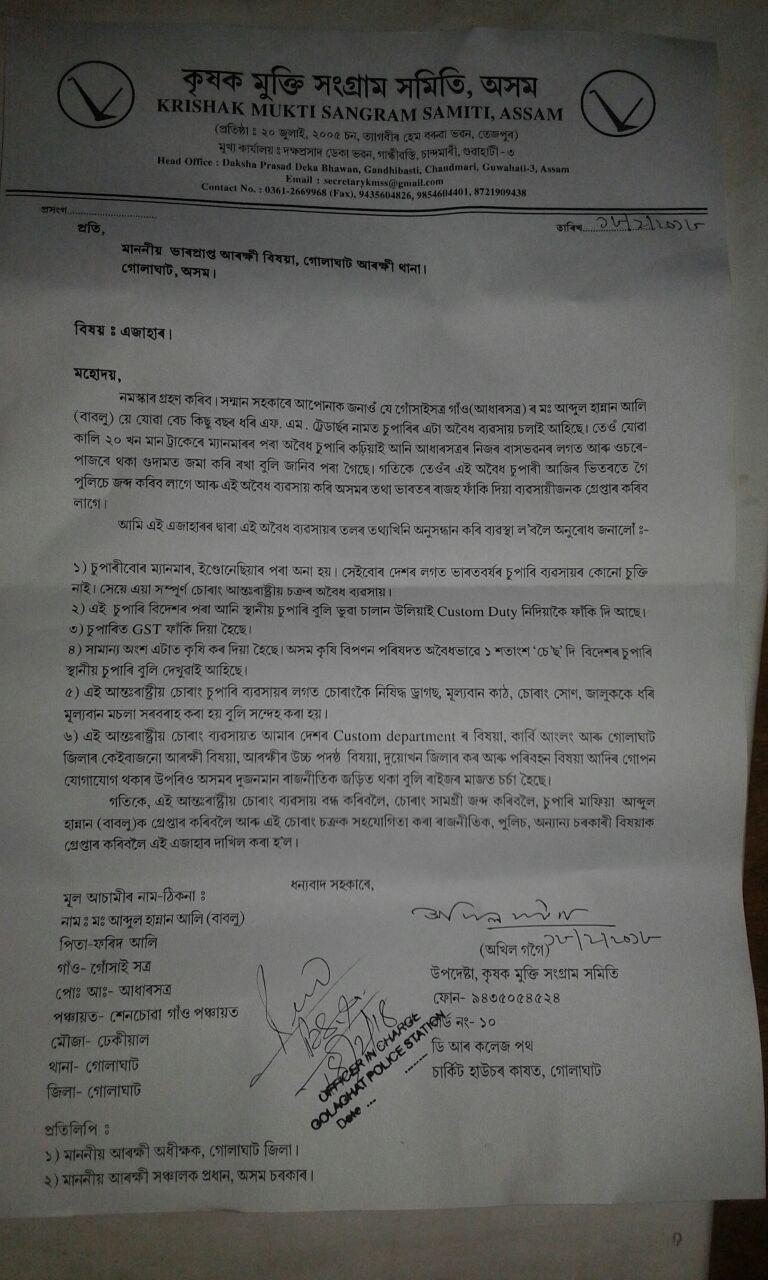 কৃষক মুক্তি সংগ্ৰাম সমিতি, অসম
KRISHAK MUKTI SANGRAM SAMITI, ASSAM
(প্ৰতিষ্ঠা : ২০ জুলাই, ২০০৫ চন, ত্যাগবীৰ হেম বৰুৱা ভৱন, তেজপুৰ)
মুখ্য কাৰ্যালয় : দক্ষপ্ৰসাদ ডেকা ভৱন, গান্ধীবস্তি, চান্দমাৰী, গুৱাহাটী -৩
Head Office : Daksha Prasad Deka Bhawan, Gandhibasti, Chandmari, Guwahati-3, Assam
Email : secretarykmss@gmail.com
Contact No. : 0361-2669968 (Fax), 9435604826, 9854604401, 8721909438
প্ৰসংগ.............................
তাৰিখ.....১৮/২/২০১৮
প্ৰতি,
মাননীয় ভাৰপ্ৰাপ্ত আৰক্ষী বিষয়া, গোলাঘাট আৰক্ষী থানা।
গোলাঘাট, অসম।
বিষয় ঃ এজাহাৰ।
মহোদয়,
নমস্কাৰ গ্ৰহণ কৰিব। সন্মান সহকাৰে আপোনাক জনাওঁ যে গোঁসাইসত্ৰ গাঁও(আধাৰসত্ৰ) ৰ মঃ আব্দুল হান্নান আলি
(বাবলু) য়ে যোৱা বেচ কিছু বছৰ ধৰি এফ. এম. ট্ৰেডাৰ্ছৰ নামত চুপাৰিৰ এটা অবৈধ ব্যৱসায় চলাই আহিছে। তেওঁ যোৱা
কালি ২০ খন মান ট্ৰাকেৰে ম্যানমাৰৰ পৰা অবৈধ চুপাৰি কঢ়িয়াই আনি আধাৰসত্ৰৰ নিজৰ বাসভৱনৰ লগত আৰু ওচৰে-
পাজৰে থকা গুদামত জমা কৰি ৰখা বুলি জানিব পৰা গৈছে। গতিকে তেওঁৰ এই অবৈধ চুপাৰী আজিৰ ভিতৰতে গৈ
পুলিচে জব্দ কৰিব লাগে আৰু এই অবৈধ ব্যৱসায় কৰি অসমৰ তথা ভাৰতৰ ৰাজহ ফাঁকি দিয়া ব্যৱসায়ীজনক গ্ৰেপ্তাৰ কৰিব
লাগে।
আমি এই এজাহাৰৰ দ্বাৰা এই অবৈধ ব্যৱসায়ৰ তলৰ তথ্যখিনি অনুসন্ধান কৰি ব্যৱস্থা ল'বলৈ অনুৰোধ জনালোঁ ঃ-
১) চুপাৰীবোৰ ম্যানমাৰ, ইণ্ডোনেছিয়াৰ পৰা অনা হয়। সেইবোৰ দেশৰ লগত ভাৰতবৰ্ষৰ চুপাৰি ব্যৱসায়ৰ কোনো চুক্তি
নাই। সেয়ে এয়া সম্পূৰ্ণ চোৰাং আন্তঃৰাষ্ট্ৰীয় চক্ৰৰ অবৈধ ব্যৱসায়।
২) এই চুপাৰি বিদেশৰ পৰা আনি স্থানীয় চুপাৰি বুলি ভুৱা চালান উলিয়াই Custom Duty নিদিয়াকৈ ফাঁকি দি আছে।
৩) চুপাৰিত GST ফাঁকি দিয়া হৈছে।
৪) সামান্য অংশ এটাত কৃষি কৰ দিয়া হৈছে। অসম কৃষি বিপণন পৰিষদত অবৈধভাৱে ১ শতাংশ 'চে'ছ' দি বিদেশৰ চুপাৰি
স্থানীয় চুপাৰি বুলি দেখুৱাই আহিছে।
৫) এই আন্তঃৰাষ্ট্ৰীয় চোৰাং চুপাৰি ব্যৱসায়ৰ লগত চোৰাংকৈ নিষিদ্ধ ড্ৰাগছ, মূল্যবান কাঠ, চোৰাং সোণ, জালুককে ধৰি
মূল্যবান মচলা সৰবৰাহ কৰা হয় বুলি সন্দেহ কৰা হয়।
৬) এই আন্তঃৰাষ্ট্ৰীয় চোৰাং ব্যৱসায়ত আমাৰ দেশৰ Custom department ৰ বিষয়া, কাৰ্বি আংলং আৰু গোলাঘাট
জিলাৰ কেইবাজনো আৰক্ষী বিষয়া, আৰক্ষীৰ উচ্চ পদষ্ঠ বিষয়া, দুয়োখন জিলাৰ কৰ আৰু পৰিবহন বিষয়া আদিৰ গোপন
যোগাযোগ থকাৰ উপৰিও অসমৰ দুজনমান ৰাজনীতিক জড়িত থকা বুলি ৰাইজৰ মাজত চৰ্চা হৈছে।
গতিকে, এই আন্তঃৰাষ্ট্ৰীয় চোৰাং ব্যৱসায় বন্ধ কৰিবলৈ, চোৰাং সামগ্ৰী জব্দ কৰিবলৈ, চুপাৰি মাফিয়া আব্দুল
হান্নান (বাবলু)ক গ্ৰেপ্তাৰ কৰিবলৈ আৰু এই চোৰাং চক্ৰক সহযোগিতা কৰা ৰাজনীতিক, পুলিচ, অন্যান্য চৰকাৰী বিষয়াক
গ্ৰেপ্তাৰ কৰিবলৈ এই এজাহাৰ দাখিল কৰা হ'ল।
ধন্যবাদ সহকাৰে,
মূল আচামীৰ নাম-ঠিকনা ঃ
নাম ঃ মঃ আব্দুল হান্নান আলি (বাবলু)
পিতা-ফৰিদ আলি
গাঁও- গোঁসাই সত্ৰ
পোঃ আঃ- আধাৰসত্ৰ
পঞ্চায়ত- শেনচোৱা গাঁও পঞ্চায়ত
মৌজা- ঢেকীয়াল
থানা- গোলাঘাট
জিলা- গোলাঘাট
অখিল গগৈ
১৮/২/২০১৮
(অখিল গগৈ)
উপদেষ্টা, কৃষক মুক্তি সংগ্ৰাম সমিতি
ফোন- ৯৪৩৫০৫৪৫২৪
ৱাৰ্ড নং- ১০
ডি আৰ কলেজ পথ
চাৰ্কিট হাউচৰ কাষত, গোলাঘাট
18/2/18
OFFICER IN CHARGE
GOLAGHAT POLICE STATION
Date ... ........
প্ৰতিলিপি ঃ
১) মাননীয় আৰক্ষী অধীক্ষক, গোলাঘাট জিলা।
২) মাননীয় আৰক্ষী সঞ্চালক প্ৰধান, অসম চৰকাৰ।